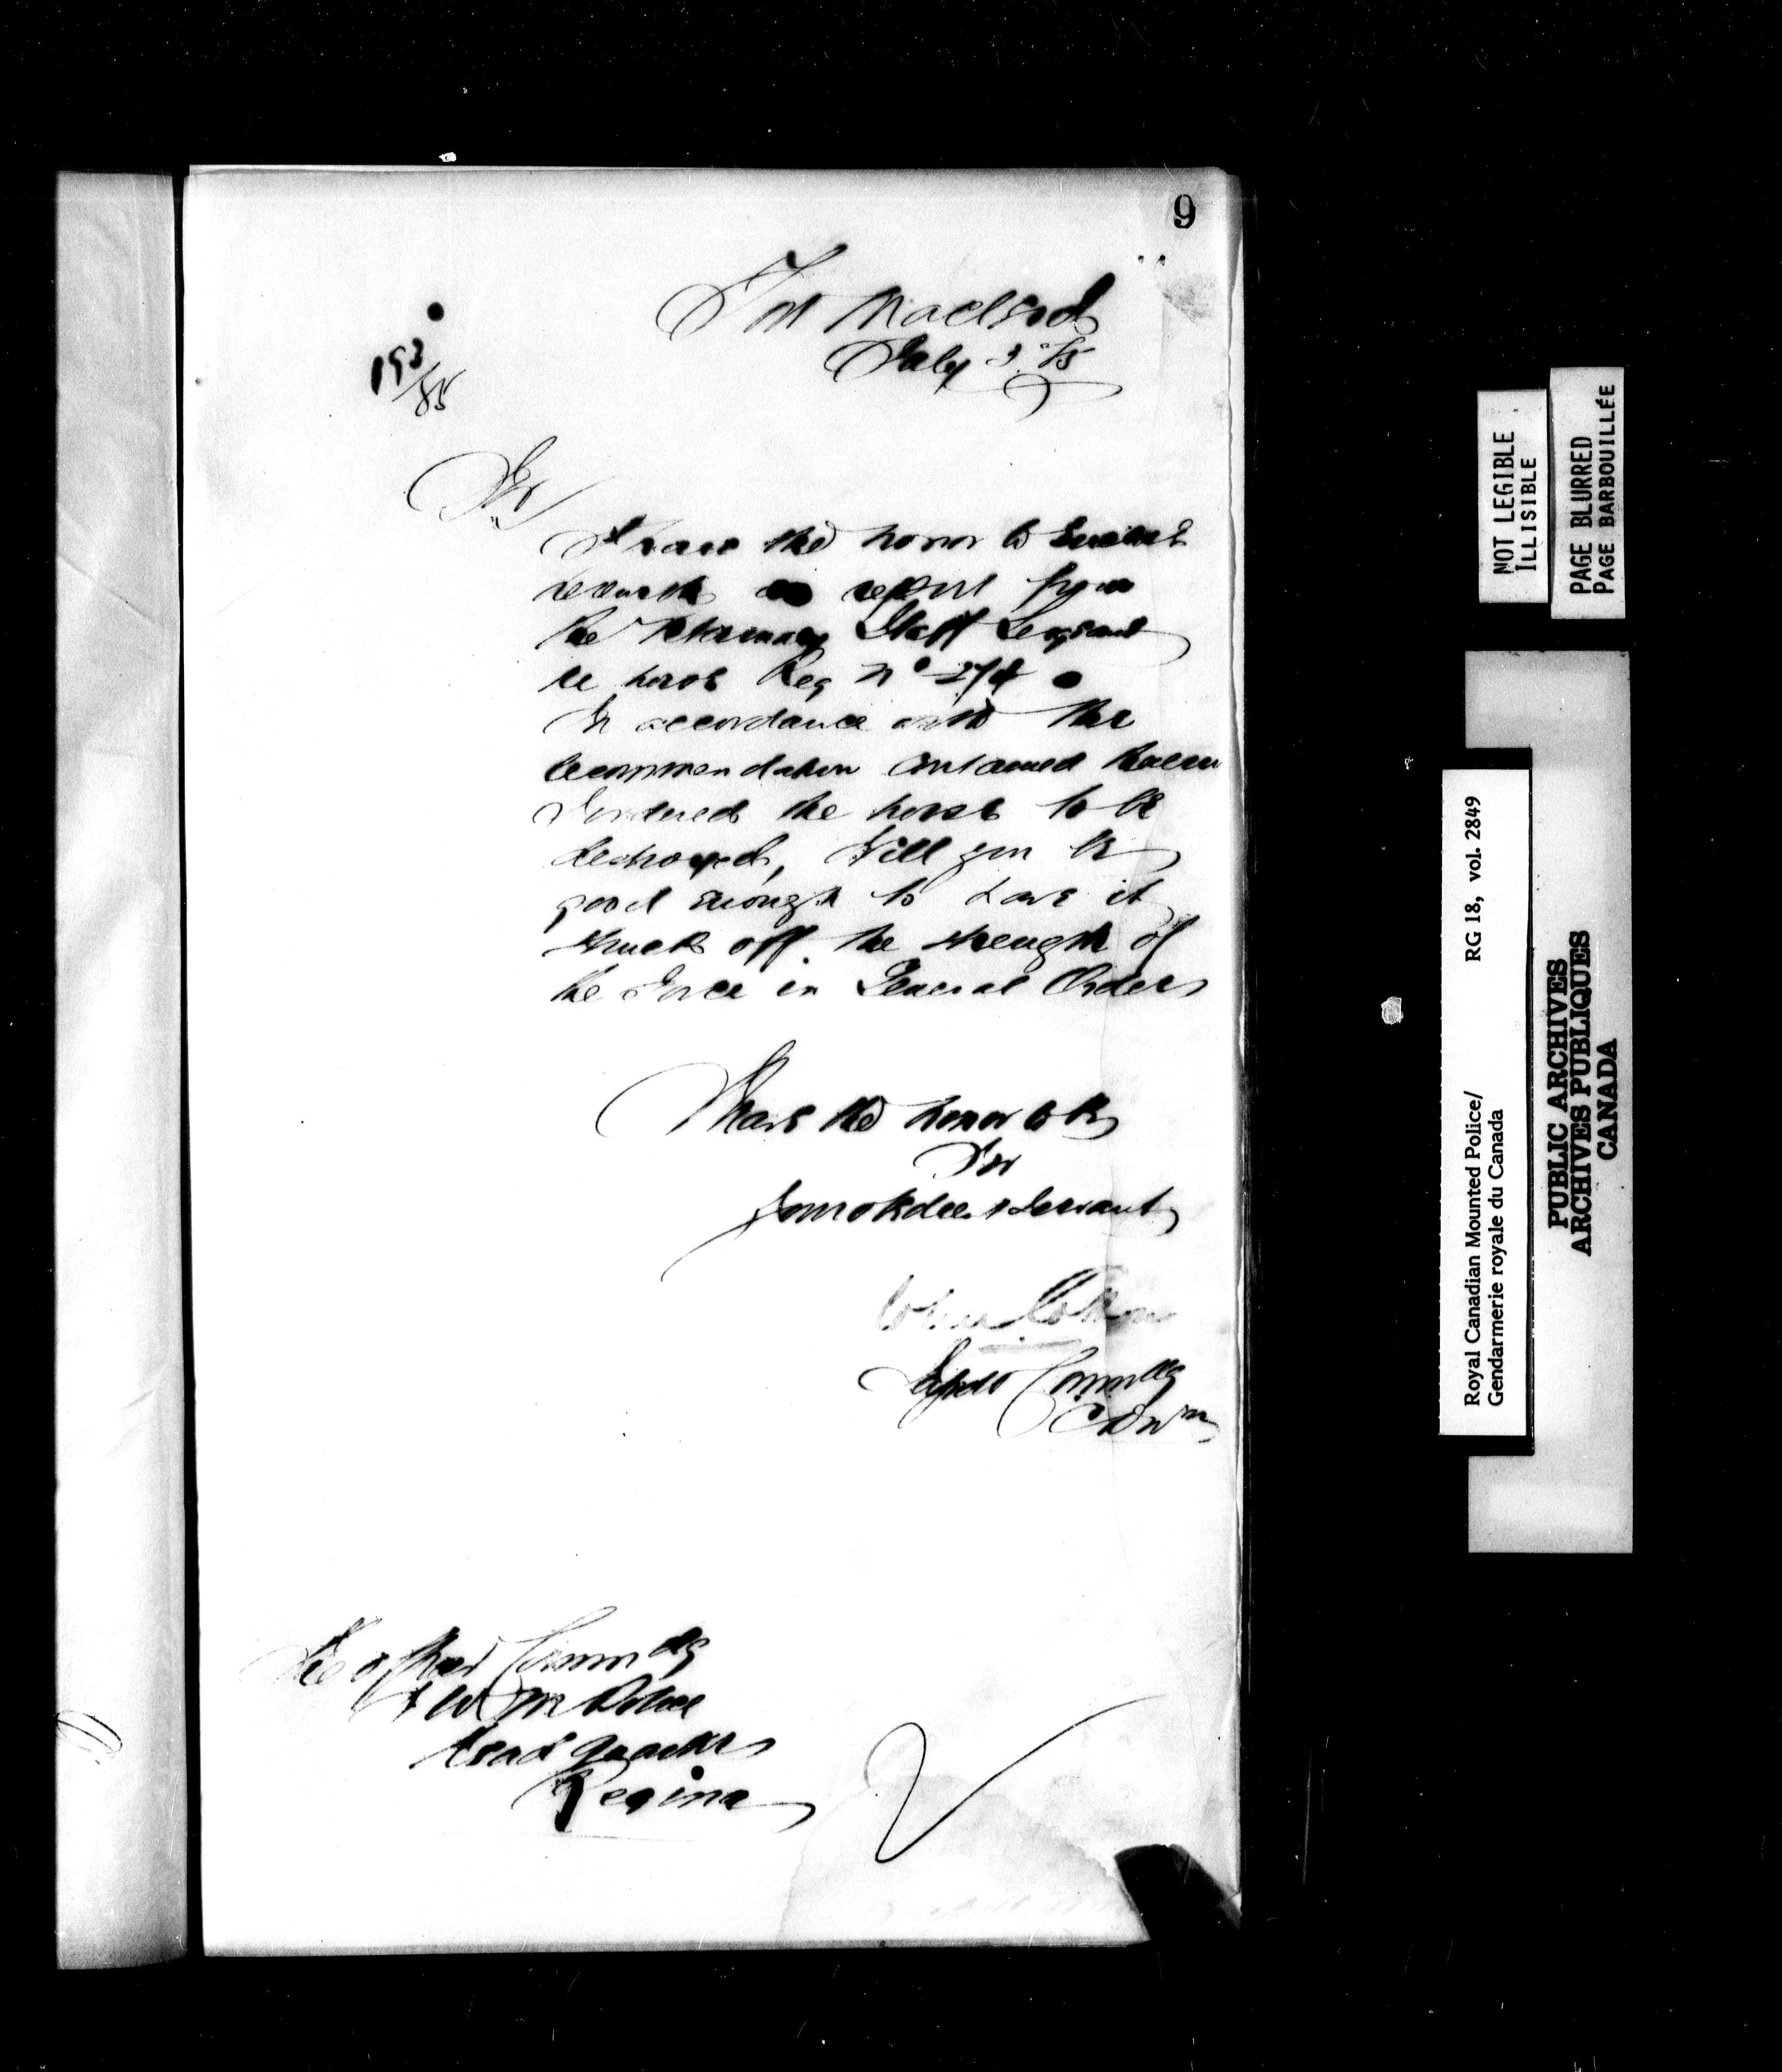 9
Fort Macleod
July 3. 85
193/85
Sir
I have the honor to
herewith a report from
the Veterinary Staff Sergeant
re horse Reg No 274
In accordance with the
recommendation contained therein
I ordered the horse to be
destroyed, Will you be
good enough to have it
struck off the strength of
the Force in General Orders
I have the honor to be
Sir
Your obedient Servant
John Cotton
Supdt Commdg
The Officer Commdg
N W M Police
Head Quarters
Regina
NOT LEGIBLE
ILLISIBLE
PAGE BLURRED
PAGE BARBOUILLÉE
Royal Canadian Mounted Police/ RG 18, vol. 2849
Gendarmerie royale du Canada
PUBLIC ARCHIVES
ARCHIVES PUBLIQUES
CANADA